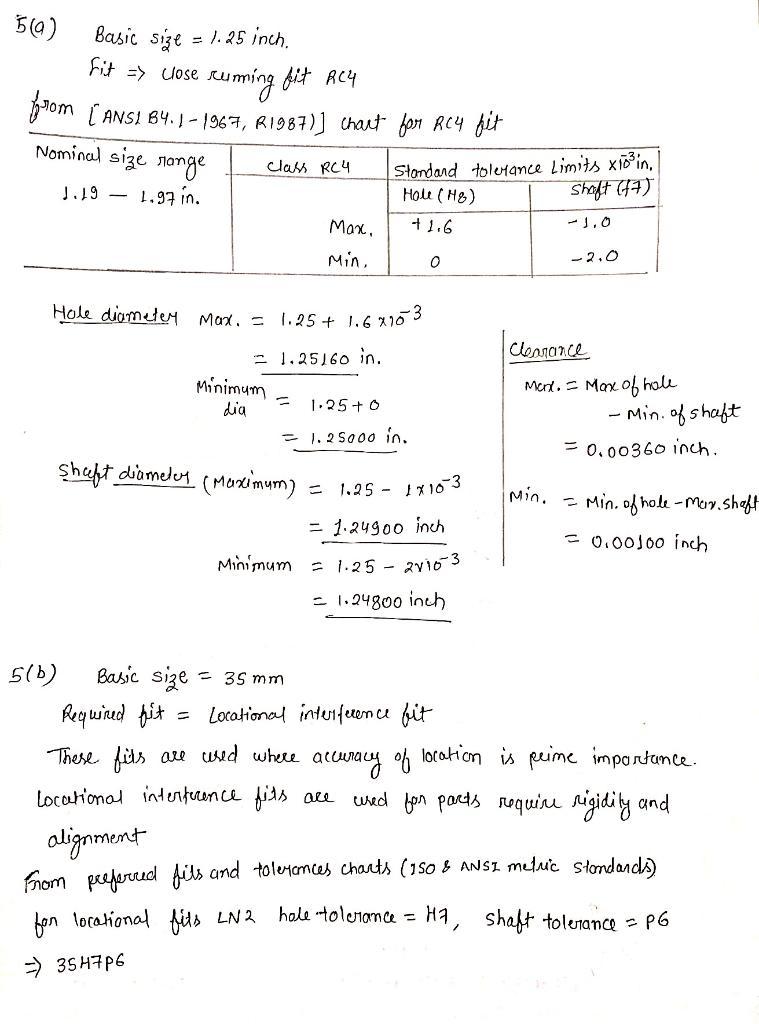 5(a) Basic size = 1.25 inch.
Fit => close running fit RC4
from [ANSI B4.1-1967, R1987)] chart for RC4 fit
Nominal size range
1.19 — 1.97 in.
Class RC4
Max.
Min.
Standard tolerance Limits x10⁻³in.
Hole (H8)
+1.6
0
Shaft (f7)
-1.0
-2.0
Hole diameter Max. = 1.25 + 1.6 x10⁻³
= 1.25160 in.
Minimum dia = 1.25+0
= 1.25000 in.
Shaft diameter (Maximum) = 1.25 - 1x10⁻³
= 1.24900 inch
Minimum = 1.25 - 2x10⁻³
= 1.24800 inch
Clearance
Max. = Max of hole
- Min. of shaft
= 0.00360 inch.
Min. = Min. of hole - Max. shaft
= 0.00100 inch
5(b) Basic size = 35 mm
Required fit = Locational interference fit
These fits are used where accuracy of location is prime importance.
Locational interference fits are used for parts require rigidity and
alignment
From preferred fits and tolerances charts (ISO & ANSI metric standards)
for locational fits LN2 hole tolerance = H7, shaft tolerance = P6
=> 35H7P6